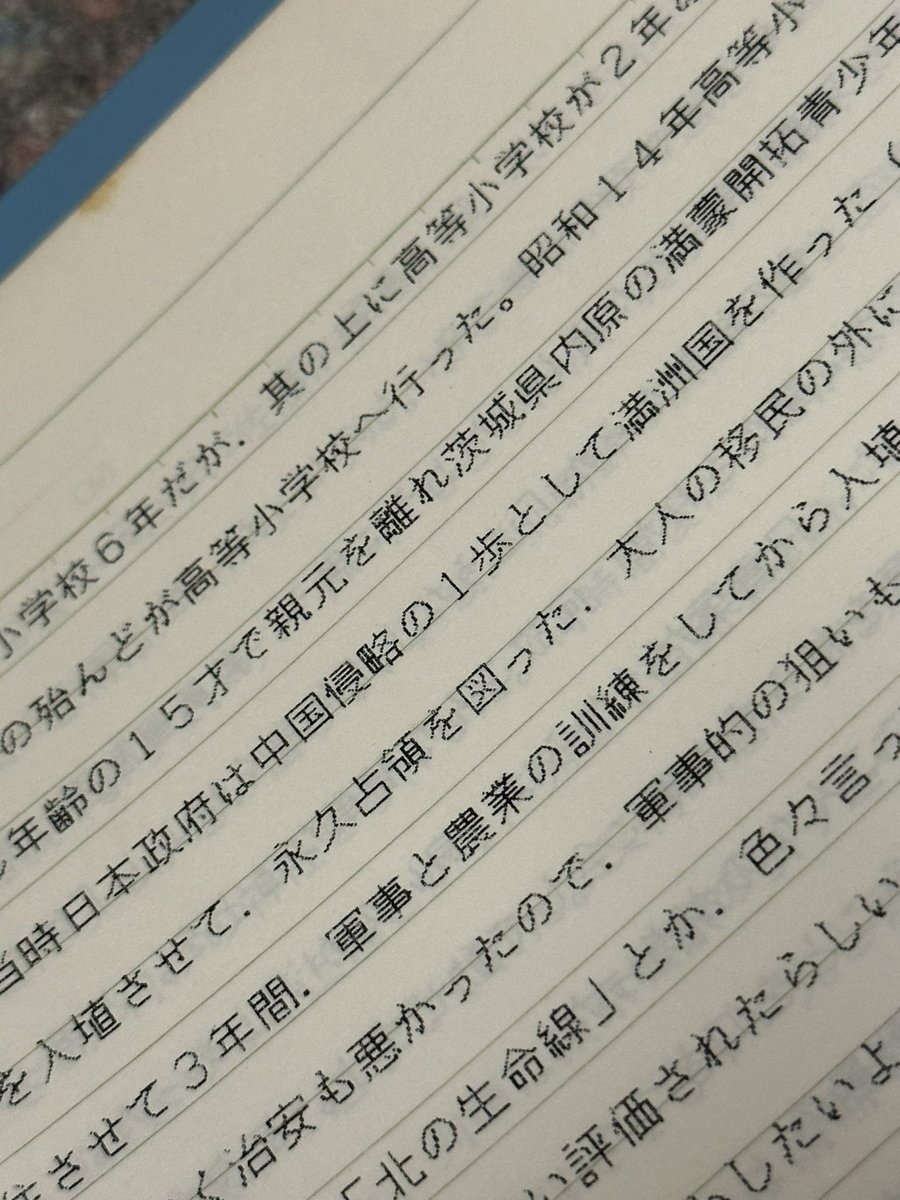 小学校6年だが．其の上に高等小学校が2年
の殆んどが高等小学校へ行った。昭和14年高等小
年齢の15才で親元を離れ茨城県内原の満蒙開拓青少年
当時日本政府は中国侵略の1歩として満洲国を作った（
を入埴させて．永久占領を図った．大人の移民の外に
させて3年間．軍事と農業の訓練をしてから入埴
治安も悪かったので．軍事的の狙いも
「北の生命線」とか．色々言っ
い評価されたらしい
したいよ